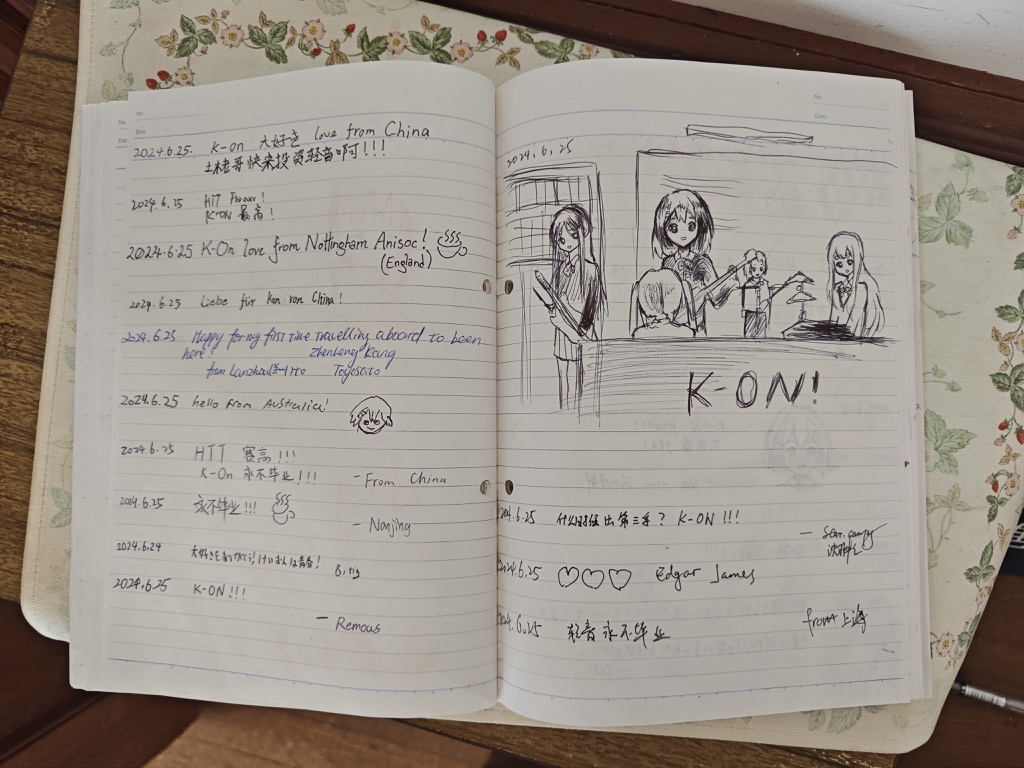 No.
Date
2024.6.25. K-on 大好き love from China
快来投资轻音啊!!!
2024.6.25 HTT Power!
K-ON 最高!
2024.6.25 K-On love from Nottingham Anisoc!
(England)
2024.6.25 Liebe für Kon von China!
2024.6.25 Happy for my first time travelling aboard to been
here!
from Lanzhou
Toyosato
2024.6.25 hello from Australia!
2024.6.25 HTT 赛高!!!
K-On 永不毕业!!!
- From China
2024.6.25 永不毕业!!!
- Nanjing
2024.6.24 大好きをありがとう!けいおんは青春!
2024.6.25 K-ON!!!
- Remous
No.
Date
2024,6,25
K-ON!
2024.6.25 什么时候出第三季? K-ON!!!
2024.6.25 Edgar James
2024.6.25 轻音永不毕业 from 上海